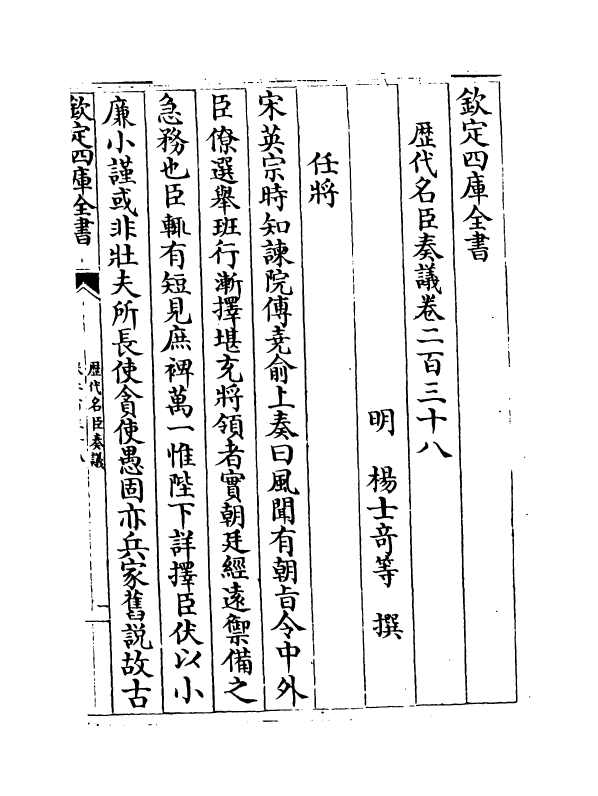 欽定四庫全書
歴代名臣奏議卷二百三十八
明　楊士竒等　撰
任將
宋英宗時知諫院傅堯俞上奏曰風聞有朝旨令中外
臣僚選舉班行漸擇堪充將領者實朝廷經遠禦備之
急務也臣輒有短見庶裨萬一惟陛下詳擇臣伏以小
廉小謹或非壯夫所長使貪使愚固亦兵家舊説故古
欽定四庫全書
歴代名臣奏議
一